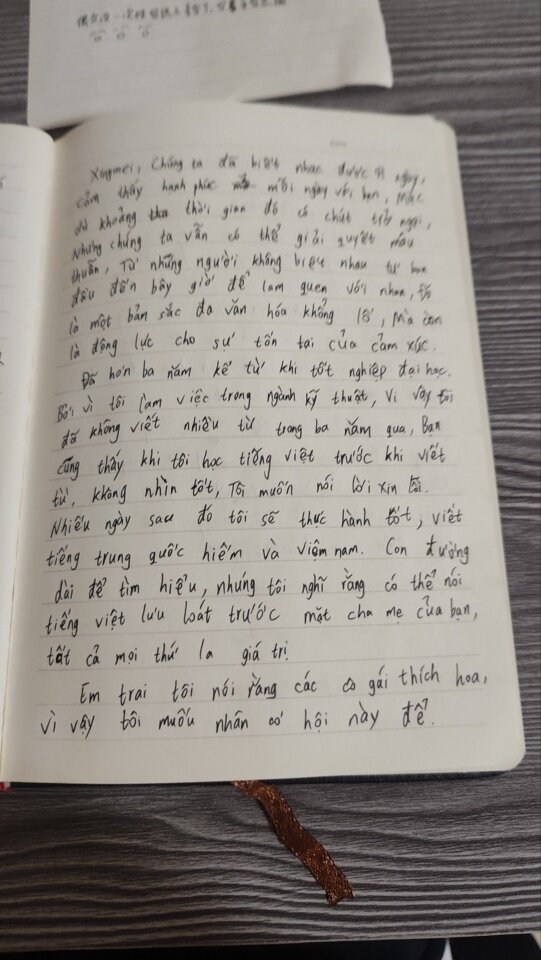 Xingmei, Chúng ta đã biết nhac được ngày,
cảm thấy hạnh phúc mỗi ngày với bạn, Mặc
dù khoảng tha thời gian đó có chút trở ngại,
Nhưng chúng ta vẫn có thể giải quyết mâu
thuẫn, Từ những người không biết nhau từ ban
đầu đến bây giờ để lam quen với nhan, Đó
là một bản sắc đa văn hóa khổng lồ, Mà còn
là động lực cho sư tồn tai của cảm xúc.
Đã hơn ba năm kể từ khi tốt nghiệp đại học.
Bởi vì tôi lam việc trong ngành kỹ thuật, Vì vậy tôi
đã không viết nhiều từ trong ba năm qua, Bạn
cũng thấy khi tôi học tiếng việt trước khi viết
từ, không nhìn tốt, Tôi muốn nói lời xin lỗi.
Nhiều ngày sau đó tôi sẽ thực hành tốt, viết
tiếng trung quốc hiếm và việm nam. Con đường
dài để tìm hiểu, nhưng tôi nghĩ rằng có thể nói
tiếng việt lưu loát trước mặt cha mẹ của bạn,
tất cả mọi thứ la giá trị
Em trai tôi nói rằng các cô gái thích hoa,
vì vậy tôi muốu nhân cơ hội này để.